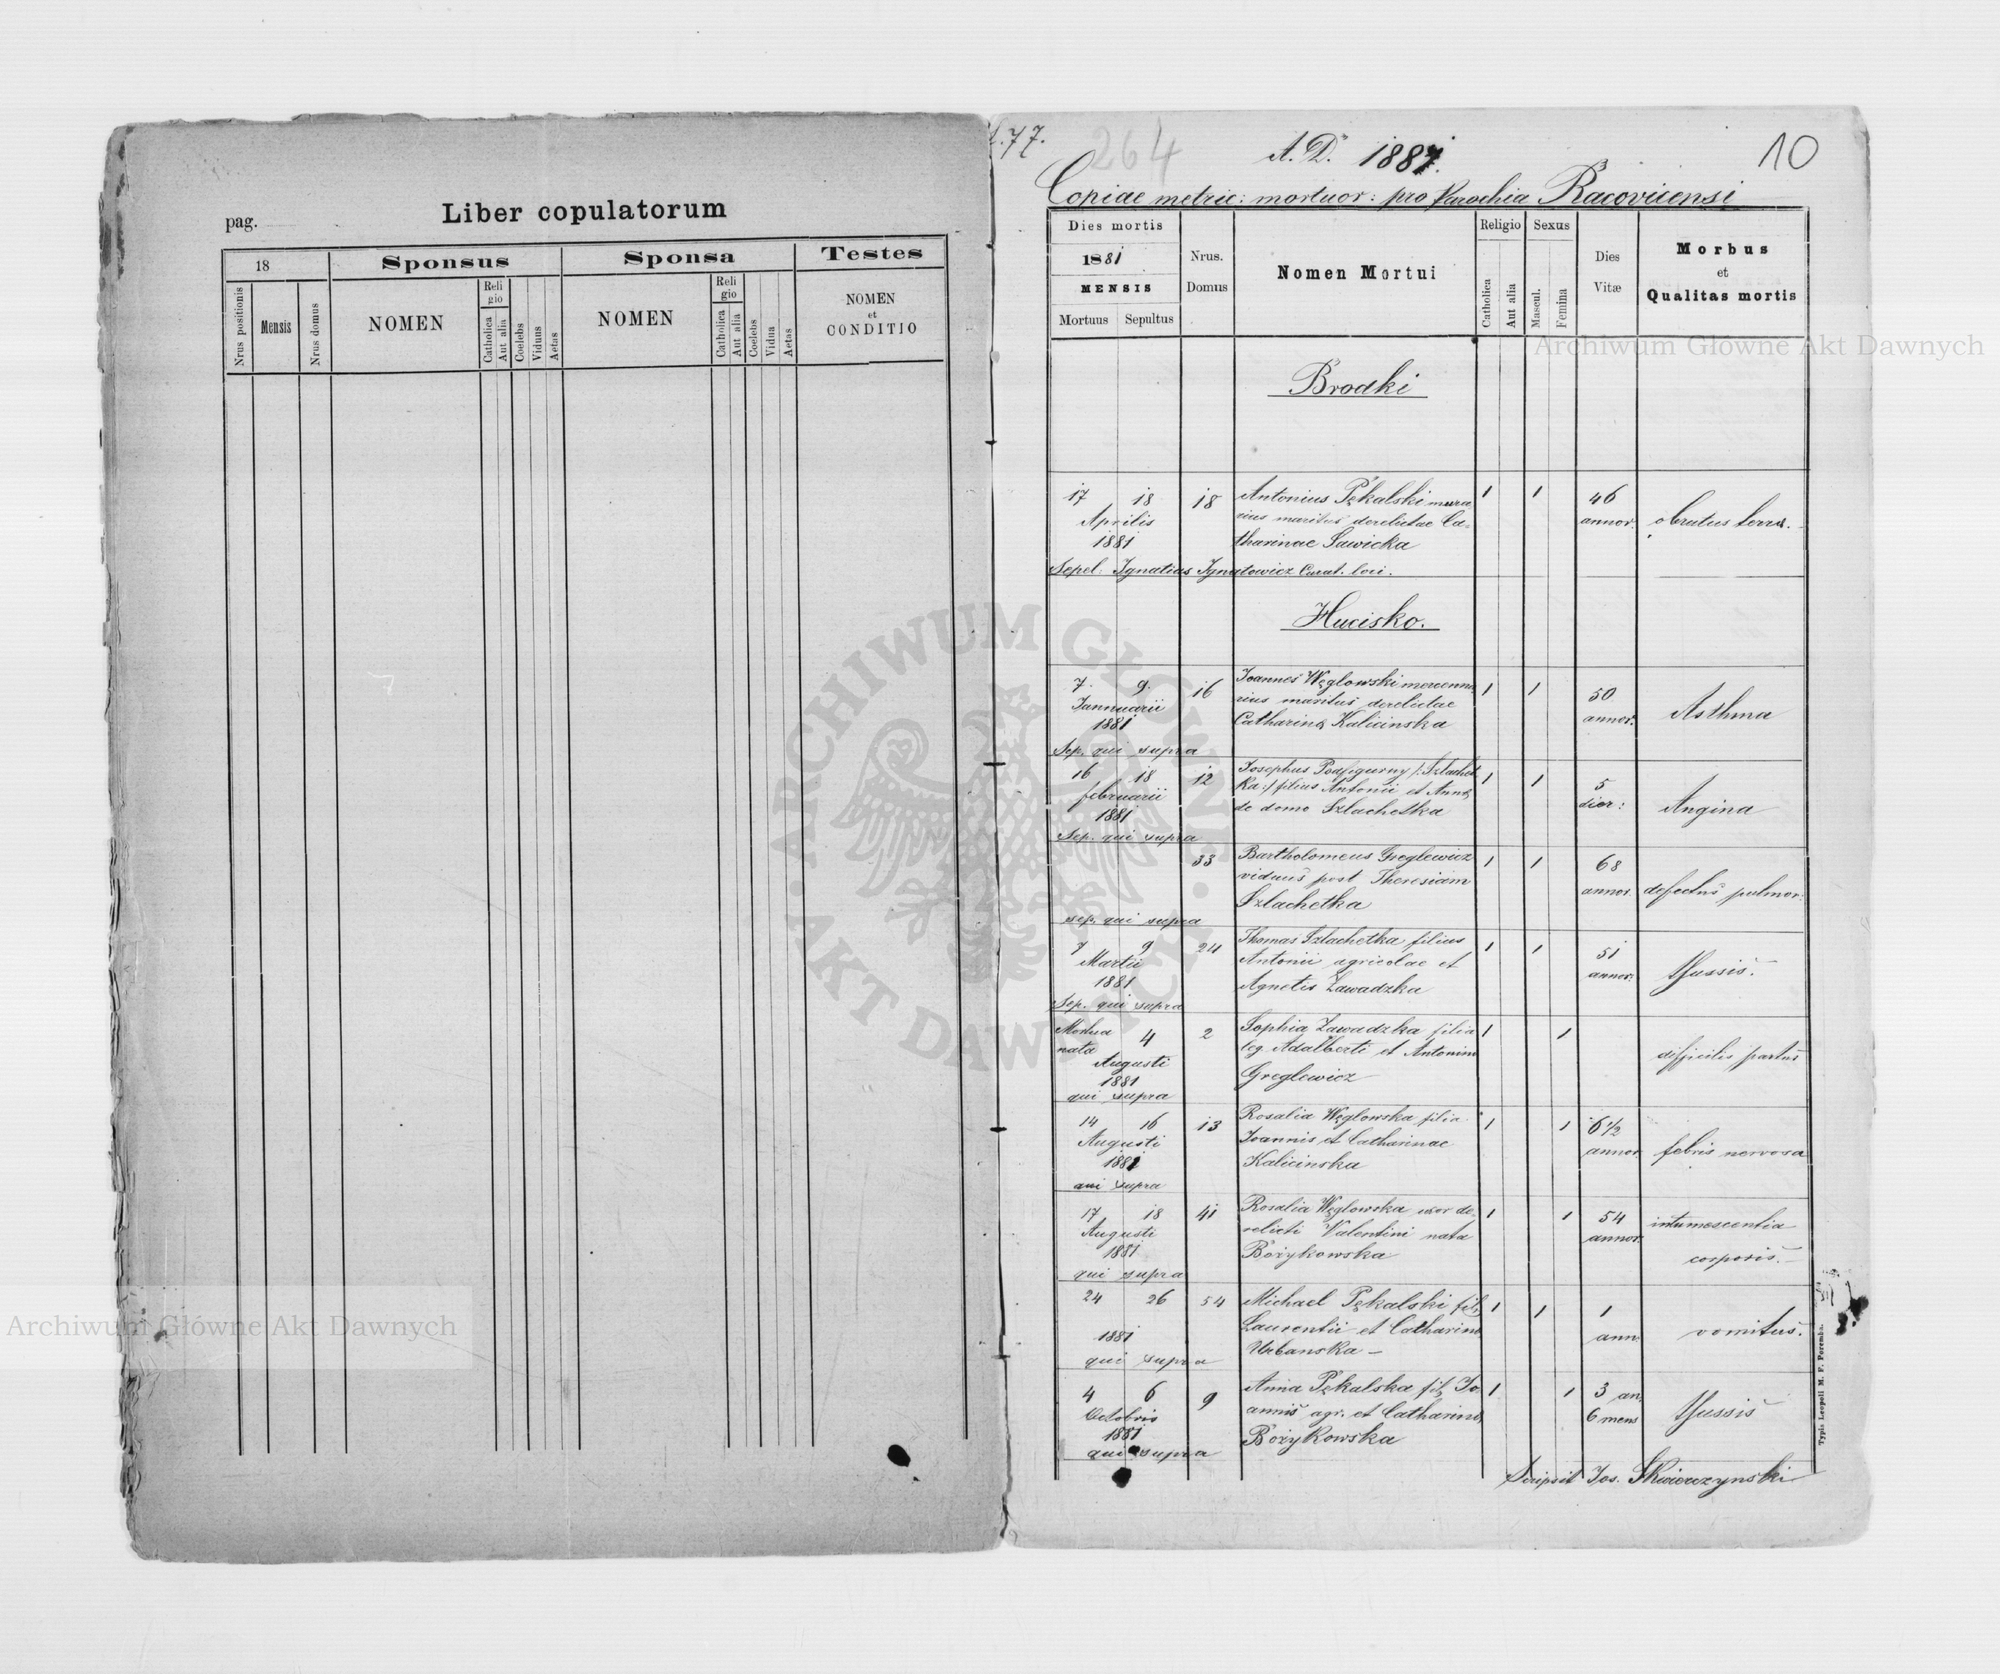 pag.
Liber copulatorum
18
Sponsus
Sponsa
Testes
Nrus positionis
Mensis
Nrus domus
NOMEN
Religio
Catholica
Aut alia
Coelebs
Viduus
Aetas
NOMEN
Religio
Catholica
Aut alia
Coelebs
Vidua
Aetas
NOMEN
et
CONDITIO
77.
264
A. D. 1881.
10
Copiae metric: mortuor: pro Parochia Racovicensi
Dies mortis
1881
MENSIS
Mortuus
Sepultus
Nrus.
Domus
Nomen Mortui
Religio
Catholica
Aut alia
Sexus
Mascul.
Femina
Dies
Vitæ
Morbus
et
Qualitas mortis
Brodki
17 18 18 Antonius Pękalski mura 1 1 46
Aprilis rius maritus derelictae Ca- annor. obrutus terra.
1881 tharinae Sawicka
Sepel: Ignatius Ignatowicz Curat. loci.
Hucisko.
7 9. 16 Joannes Węglowski mercenna 1 1 50
Jannuarii rius maritus derelictae annor. Asthma
1881 Catharinę Kalicinska
Sep. qui supra
16 18 12 Josephus Podfigurny /:Szlachet 1 1 5
februarii ka:/ filius Antonii et Annę dier: Angina
1881 de domo Szlachetka
Sep. qui supra
33 Bartholomeus Greglewicz 1 1 68
viduus post Theresiam annor. defectus pulmor:
Szlachetka
sep. qui supra
7 9 24 Thomas Szlachetka filius 1 1 51
Martii Antonii agricolae et annor: tussis.
1881 Agnetis Zawadzka
Sep. qui supra
Mortua 4 2 Sophia Zawadzka filia 1 1
nata leg. Adalberti et Antoninę difficilis partus
Augusti Greglewicz
1881
qui supra
14 16 13 Rosalia Węglowska filia 1 1 6 1/2
Augusti Joannis et Catharinae annor. febris nervosa
1881 Kalicinska
qui supra
17 18 41 Rosalia Węglowska uxor de- 1 1 54 intumescentia
Augusti relicti Valentini nata annor. corporis.
1881 Bożykowska
qui supra
24 26 54 Michael Pękalski fil, 1 1 1
1881 Laurentii et Catharinę ann: vomitus.
qui supra Urbanska
4 6 9 Anna Pękalska fil, Jo 1 1 3 an,
Octobris annis agr. et Catharinę 6 mens tussis
1881 Bożykowska
qui supra
Scripsit Jos. Skwierczynski
Typis Leopoli M. F. Poremba.
ARCHIWUM GŁÓWNE
AKT DAWNYCH
Archiwum Główne Akt Dawnych
Archiwum Główne Akt Dawnych